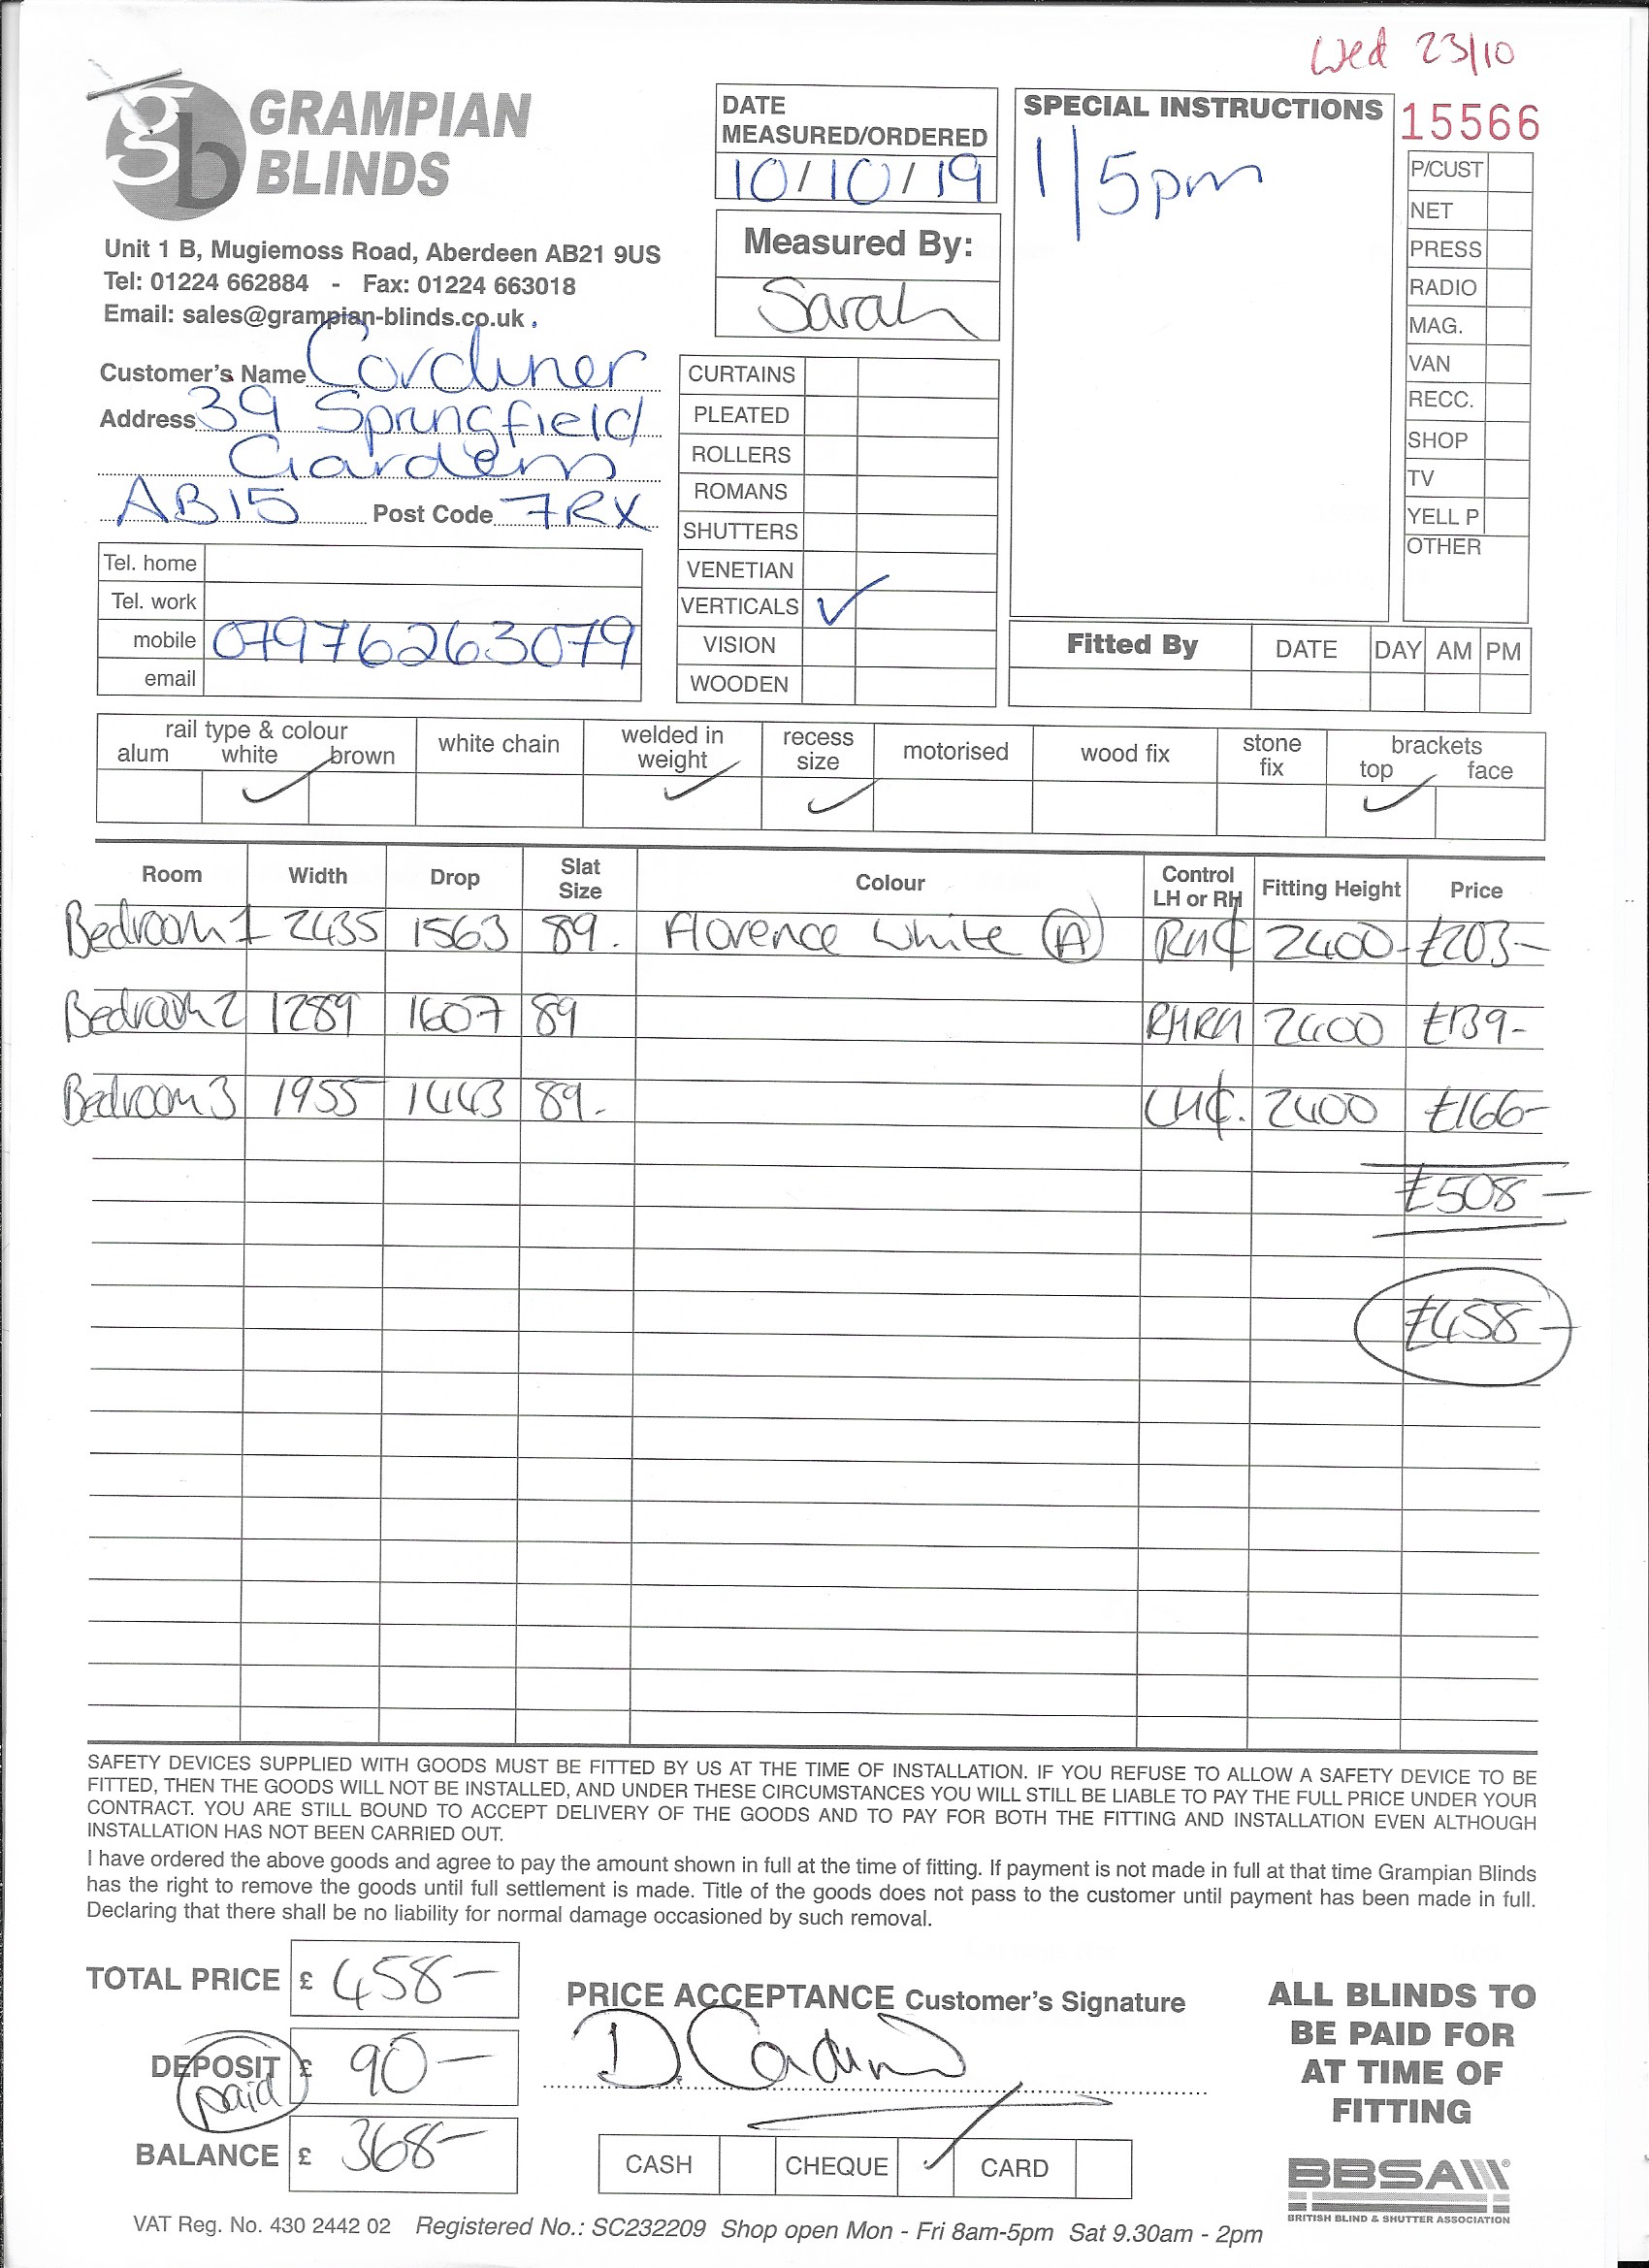 Wed 23/10
gb GRAMPIAN
BLINDS
Unit 1 B, Mugiemoss Road, Aberdeen AB21 9US
Tel: 01224 662884 - Fax: 01224 663018
Email: sales@grampian-blinds.co.uk
Customer's Name Cordiner
Address 39 Springfield
Gardens
AB15 Post Code 7RX
Tel. home
Tel. work
mobile 07976263079
email
DATE
MEASURED/ORDERED
10/10/19
Measured By:
Sarah
CURTAINS
PLEATED
ROLLERS
ROMANS
SHUTTERS
VENETIAN
VERTICALS ✓
VISION
WOODEN
SPECIAL INSTRUCTIONS
1/5pm
15566
P/CUST
NET
PRESS
RADIO
MAG.
VAN
RECC.
SHOP
TV
YELL P
OTHER
Fitted By DATE DAY AM PM
rail type & colour
alum white brown
white chain
welded in
weight
recess
size
motorised
wood fix
stone
fix
brackets
top face
✓ ✓ ✓ ✓
Room Width Drop Slat Size Colour Control LH or RH Fitting Height Price
Bedroom 1 2435 1563 89. Florence White (A) RH₵ 2400- £203-
Bedroom 2 1289 1607 89 RHRH 2400 £139-
Bedroom 3 1955 1443 89. LH₵. 2400 £166-
£508-
£458-
SAFETY DEVICES SUPPLIED WITH GOODS MUST BE FITTED BY US AT THE TIME OF INSTALLATION. IF YOU REFUSE TO ALLOW A SAFETY DEVICE TO BE
FITTED, THEN THE GOODS WILL NOT BE INSTALLED, AND UNDER THESE CIRCUMSTANCES YOU WILL STILL BE LIABLE TO PAY THE FULL PRICE UNDER YOUR
CONTRACT. YOU ARE STILL BOUND TO ACCEPT DELIVERY OF THE GOODS AND TO PAY FOR BOTH THE FITTING AND INSTALLATION EVEN ALTHOUGH
INSTALLATION HAS NOT BEEN CARRIED OUT.
I have ordered the above goods and agree to pay the amount shown in full at the time of fitting. If payment is not made in full at that time Grampian Blinds
has the right to remove the goods until full settlement is made. Title of the goods does not pass to the customer until payment has been made in full.
Declaring that there shall be no liability for normal damage occasioned by such removal.
TOTAL PRICE £ 458-
DEPOSIT £ 90-
paid
BALANCE £ 368-
PRICE ACCEPTANCE Customer's Signature
D. Cordiner
CASH CHEQUE ✓ CARD
ALL BLINDS TO
BE PAID FOR
AT TIME OF
FITTING
BBSA
BRITISH BLIND & SHUTTER ASSOCIATION
VAT Reg. No. 430 2442 02 Registered No.: SC232209 Shop open Mon - Fri 8am-5pm Sat 9.30am - 2pm